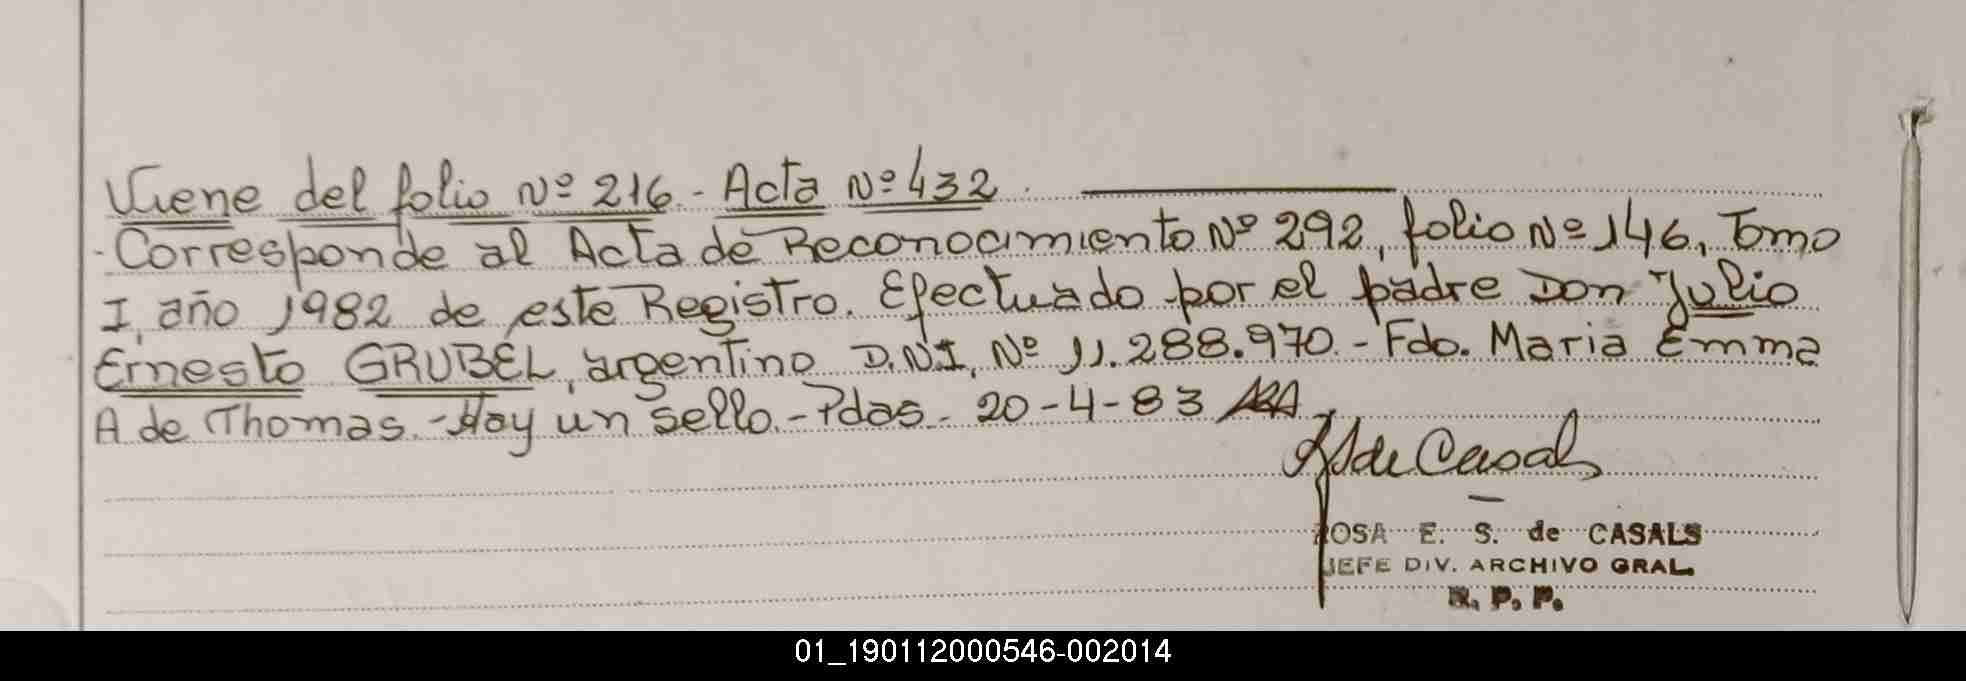 Viene del folio Nº 216.- Acta Nº 432.
-Corresponde al Acta de Reconocimiento Nº 292, folio Nº 146, Tomo
I, año 1982 de este Registro. Efectuado por el padre Don Julio
Ernesto GRUBEL, argentino D.N.I. Nº 11.288.970.- Fdo. Maria Emma
A de Thomas.- Hay un sello.- Pdas.- 20-4-83
de Casals
ROSA E. S. de CASALS
JEFE DIV. ARCHIVO GRAL.
R. P. P.
01_190112000546-002014